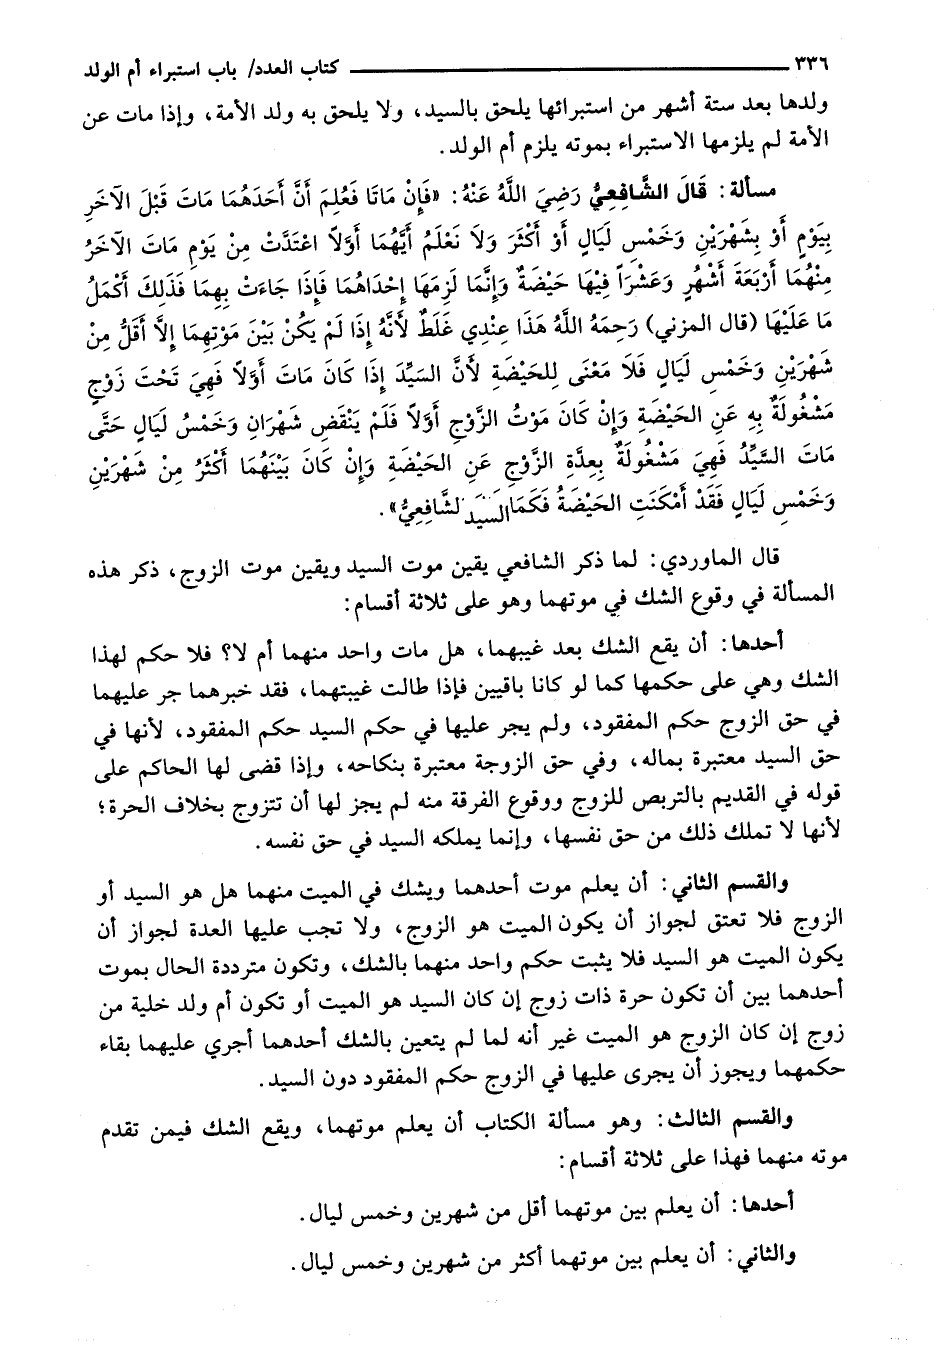 ٣٣٦ كتاب العدد/ باب استبراء أم الولد
ولدها بعد ستة أشهر من استبرائها يلحق بالسيد، ولا يلحق به ولد الأمة، وإذا مات عن
الأمة لم يلزمها الاستبراء بموته يلزم أم الولد.
مسألة: قَالَ الشَّافِعِيُّ رَضِيَ اللَّهُ عَنْهُ: «فَإِنْ مَاتَا فَعُلِمَ أَنَّ أَحَدَهُمَا مَاتَ قَبْلَ الآخَرِ
بِيَوْمٍ أَوْ بِشَهْرَيْنِ وَخَمْسِ لَيَالٍ أَوْ أَكْثَرَ وَلَا نَعْلَمُ أَيَّهُمَا أَوَّلاً اعْتَدَّتْ مِنْ يَوْمِ مَاتَ الآخَرُ
مِنْهُمَا أَرْبَعَةَ أَشْهُرٍ وَعَشْرَاً فِيهَا حَيْضَةٌ وَإِنَّمَا لَزِمَهَا إِحْدَاهُمَا فَإِذَا جَاءَتْ بِهِمَا فَذَلِكَ أَكْمَلُ
مَا عَلَيْهَا (قال المزني) رَحِمَهُ اللَّهُ هَذَا عِنْدِي غَلَطٌ لأَنَّهُ إِذَا لَمْ يَكُنْ بَيْنَ مَوْتِهِمَا إِلاَّ أَقَلُّ مِنْ
شَهْرَيْنِ وَخَمْسِ لَيَالٍ فَلَا مَعْنَى لِلحَيْضَةِ لأَنَّ السَيِّدَ إِذَا كَانَ مَاتَ أَوَّلاً فَهِيَ تَحْتَ زَوْجٍ
مَشْغُولَةٌ بِهِ عَنِ الحَيْضَةِ وَإِنْ كَانَ مَوْتُ الزَّوْجِ أَوَّلاً فَلَمْ يَنْقَضِ شَهْرَانِ وَخَمْسُ لَيَالٍ حَتَّى
مَاتَ السَّيِّدُ فَهِيَ مَشْغُولَةٌ بِعِدَّةِ الزَّوْجِ عَنِ الحَيْضَةِ وَإِنْ كَانَ بَيْنَهُمَا أَكْثَرُ مِنْ شَهْرَيْنِ
وَخَمْسِ لَيَالٍ فَقَدْ أَمْكَنَتِ الحَيْضَةُ فَكَمَا السَيد لشَّافِعِيُّ».
قال الماوردي: لما ذكر الشافعي يقين موت السيد ويقين موت الزوج، ذكر هذه
المسألة في وقوع الشك في موتهما وهو على ثلاثة أقسام:
أحدها: أن يقع الشك بعد غيبهما، هل مات واحد منهما أم لا؟ فلا حكم لهذا
الشك وهي على حكمها كما لو كانا باقيين فإذا طالت غيبتهما، فقد خبرهما جر عليهما
في حق الزوج حكم المفقود، ولم يجر عليها في حكم السيد حكم المفقود، لأنها في
حق السيد معتبرة بماله، وفي حق الزوجة معتبرة بنكاحه، وإذا قضى لها الحاكم على
قوله في القديم بالتربص للزوج ووقوع الفرقة منه لم يجز لها أن تتزوج بخلاف الحرة؛
لأنها لا تملك ذلك من حق نفسها، وإنما يملكه السيد في حق نفسه.
والقسم الثاني: أن يعلم موت أحدهما ويشك في الميت منهما هل هو السيد أو
الزوج فلا تعتق لجواز أن يكون الميت هو الزوج، ولا تجب عليها العدة لجواز أن
يكون الميت هو السيد فلا يثبت حكم واحد منهما بالشك، وتكون مترددة الحال بموت
أحدهما بين أن تكون حرة ذات زوج إن كان السيد هو الميت أو تكون أم ولد خلية من
زوج إن كان الزوج هو الميت غير أنه لما لم يتعين بالشك أحدهما أجري عليهما بقاء
حكمهما ويجوز أن يجرى عليها في الزوج حكم المفقود دون السيد.
والقسم الثالث: وهو مسألة الكتاب أن يعلم موتهما، ويقع الشك فيمن تقدم
موته منهما فهذا على ثلاثة أقسام:
أحدها: أن يعلم بين موتهما أقل من شهرين وخمس ليال.
والثاني: أن يعلم بين موتهما أكثر من شهرين وخمس ليال.